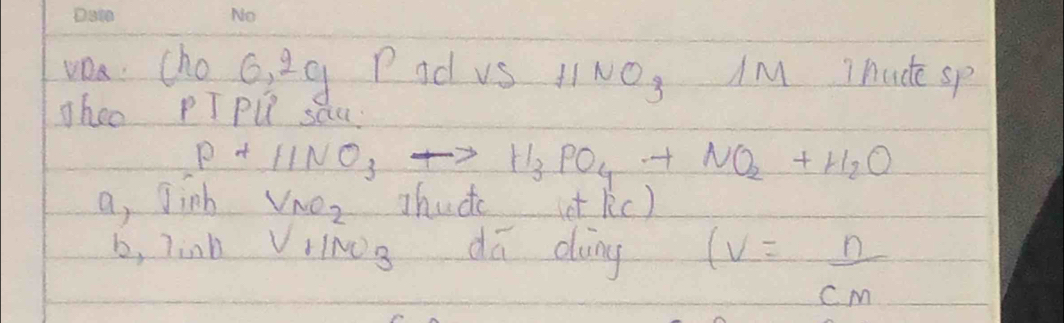 Date No
VD2: Cho 6,2g P td vs HNO3 1M thu đc sp
theo PTPƯ sau:
P + HNO3 → H3PO4 + NO2 + H2O
a, Tính VNO2 thu đc (đkc)
b, Tính VHNO3 đã dùng (V = n
CM